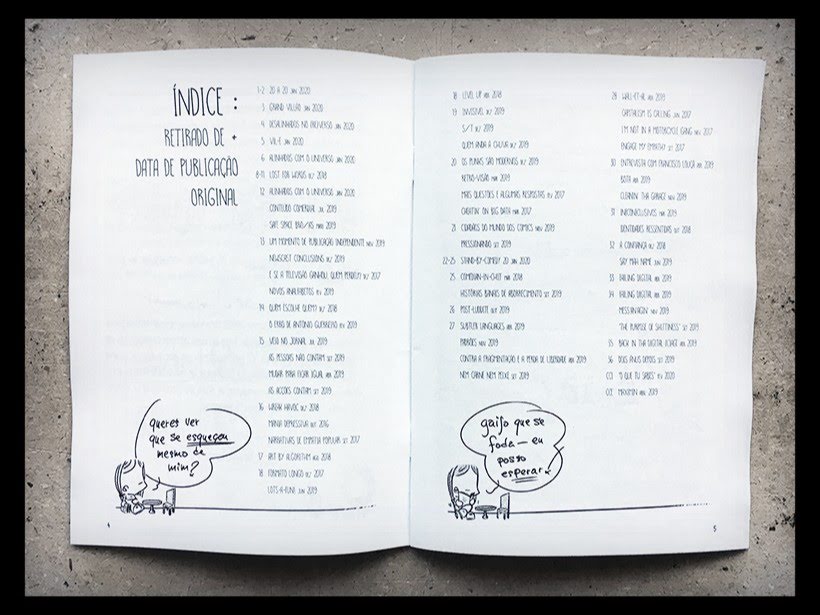 ÍNDICE :
RETIRADO DE +
DATA DE PUBLICAÇÃO
ORIGINAL
1-2 20 A 20 JAN 2020
3 GRAND VILLÃO JAN 2020
4 DESALINHADOS NO PREVERSO JAN 2020
5 VIL-E JAN 2020
6 ALINHADOS COM O UNIVERSO JAN 2020
8-11 LOST FOR WORDS DEZ 2018
12 ALINHADOS COM O UNIVERSO JAN 2020
CONTEÚDO COMERCIAL JUL 2019
SAFE SPACE MAR 2019
13 UM MOMENTO DE PUBLICAÇÃO INDEPENDENTE NOV 2019
NEWSCAST CONCLUSIONS DEZ 2019
E SE A TELEVISÃO GANHOU, QUEM PERDEU? DEZ 2017
NOVOS ANALFABETOS FEV 2019
14 QUEM ESCOLHE QUEM? DEZ 2018
O ERRO DE ANTÓNIO GUERREIRO FEV 2019
15 VEIO NO JORNAL JUL 2019
AS PESSOAS NÃO CONTAM SET 2019
MUDAR PARA FICAR IGUAL ABR 2019
AS ACÇÕES CONTAM SET 2019
16 WREAK HAVOC DEZ 2018
MANIA DEPRESSIVA OUT 2016
NARRATIVAS DE EMPATIA POPULAR SET 2017
17 ART BY ALGORITHM AGO 2018
18 FORMATO LONGO DEZ 2017
LOTS-A-FUN! JUN 2019
queres ver
que se esqueceu
mesmo de
mim?
4
18 LEVEL UP ABR 2018
19 INVISÍVEL DEZ 2019
S/T DEZ 2019
QUEM ANDA À CHUVA DEZ 2019
20 OS PUNKS SÃO MODERNOS DEZ 2019
RETRO-VISÃO MAR 2019
MAIS QUESTÕES E ALGUMAS RESPOSTAS DEZ 2017
CHEATIN' ON BIG DATA MAR 2017
21 CIDADÃOS DO MUNDO DOS COMICS NOV 2019
PRESSIONANDO SET 2019
22-25 STAND-BY-COMEDY 20 JAN 2020
25 COMEDIAN-IN-CHIEF MAR 2018
HISTÓRIAS BANAIS DE ABORRECIMENTO SET 2019
26 POST-LUDDITE OUT 2019
27 SUBTLER LANGUAGES ABR 2019
PADRÕES NOV 2019
CONTRA A FRAGMENTAÇÃO E A PERDA DE LIBERDADE ABR 2019
NEM CARNE NEM PEIXE SET 2019
gaijo que se
foda — eu
posso
esperar.
29 WALL-ET-AL ABR 2019
CAPITALISM IS CALLING JUN 2017
I'M NOT IN A MOTORCYCLE GANG NOV 2017
ENGAGE MY EMPATHY SET 2017
30 ENTREVISTA COM FRANCISCO LOUÇÃ ABR 2019
BOTA ABR 2019
CLEANIN' THA GARAGE NOV 2019
31 INICONCLUSIVOS MAR 2019
IDENTIDADES RESSENTIDAS SET 2018
32 A CONFIANÇA DEZ 2018
SAY MAH NAME JUN 2019
33 FAILING DIGITAL ABR 2019
34 FAILING DIGITAL ABR 2019
MESSIN'AGIN' NOV 2019
"THE PURPOSE OF SHITTINESS" SET 2019
35 BACK IN THA DIGITAL ABR 2019
36 DOIS ANUS DEPOIS SET 2019
CC1 "O QUE TU SABES" FEV 2020
CC2 MAXIMIN ABR 2019
5